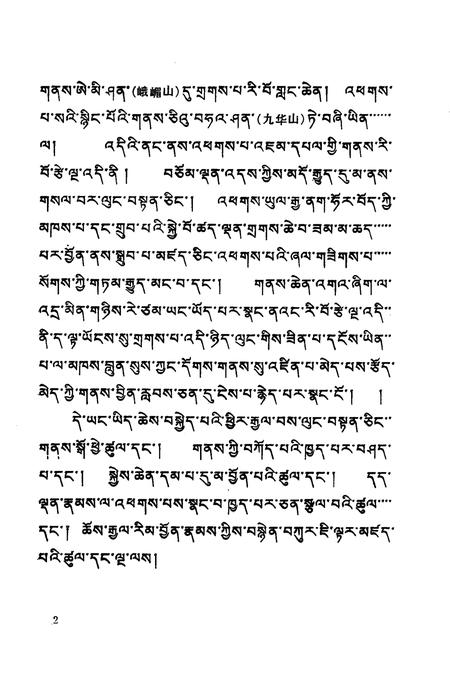 གནས་ཨེ་མི་ཤན་(峨嵋山)དུ་གྲགས་པ་རི་བོ་གླང་ཆེན། འཕགས་
པ་སའི་སྙིང་པོའི་གནས་ཅིའུ་བཧྭ་ཤན་(九华山)ཏེ་བཞི་ཡིན་……
ལ། འདིའི་ནང་ནས་འཕགས་པ་འཇམ་དཔལ་གྱི་གནས་རི་
བོ་རྩེ་ལྔ་འདི་ནི། བཅོམ་ལྡན་འདས་ཀྱིས་མདོ་རྒྱུད་དུ་མ་ནས་
གསལ་བར་ལུང་བསྟན་ཅིང་། འཕགས་ཡུལ་རྒྱ་ནག་ཧོར་བོད་ཀྱི་
མཁས་པ་དང་གྲུབ་པའི་སྐྱེ་བོ་ཚད་ལྡན་གྲགས་ཆེ་བ་ཟམ་མ་ཆད་……
པར་བྱོན་ནས་སྒྲུབ་པ་མཛད་ཅིང་འཕགས་པའི་ཞལ་གཟིགས་པ་……
སོགས་ཀྱི་གཏམ་རྒྱུད་མང་བ་དང་། གནས་ཆེན་འགའ་ཞིག་ལ་
འདྲ་མིན་གཉིས་རེ་ཙམ་ཡང་ཡོད་པར་སྣང་ནའང་རི་བོ་རྩེ་ལྔ་འདི་…
ནི་ད་ལྟ་ཡོངས་སུ་གྲགས་པ་འདི་ཉིད་ལུང་གིས་ཟིན་པ་དངོས་ཡིན་…
པ་ལ་མཁས་བླུན་སུས་ཀྱང་དོགས་གནས་སུ་འཛིན་པ་མེད་པས་རྩོད་
མེད་ཀྱི་གནས་བྱིན་རླབས་ཅན་དུ་ངེས་པ་རྙེད་པར་སྣང་ངོ་། །
དེ་ཡང་ཡིད་ཆེས་བསྐྱེད་པའི་ཕྱིར་རྒྱལ་བས་ལུང་བསྟན་ཅིང་…
གནས་སྒོ་ཕྱེ་ཚུལ་དང་། གནས་ཀྱི་བཀོད་པའི་ཁྱད་པར་བཤད་
པ་དང་། སྐྱེས་ཆེན་དམ་པ་དུ་མ་བྱོན་པའི་ཚུལ་དང་། དད་
ལྡན་རྣམས་ལ་འཕགས་པས་སྣང་བ་ཁྱད་པར་ཅན་སྩལ་བའི་ཚུལ་……
དང་། ཆོས་རྒྱལ་རིམ་བྱོན་རྣམས་ཀྱིས་བསྙེན་བཀུར་ཇི་ལྟར་མཛད་
པའི་ཚུལ་དང་ལྔ་ལས།
2